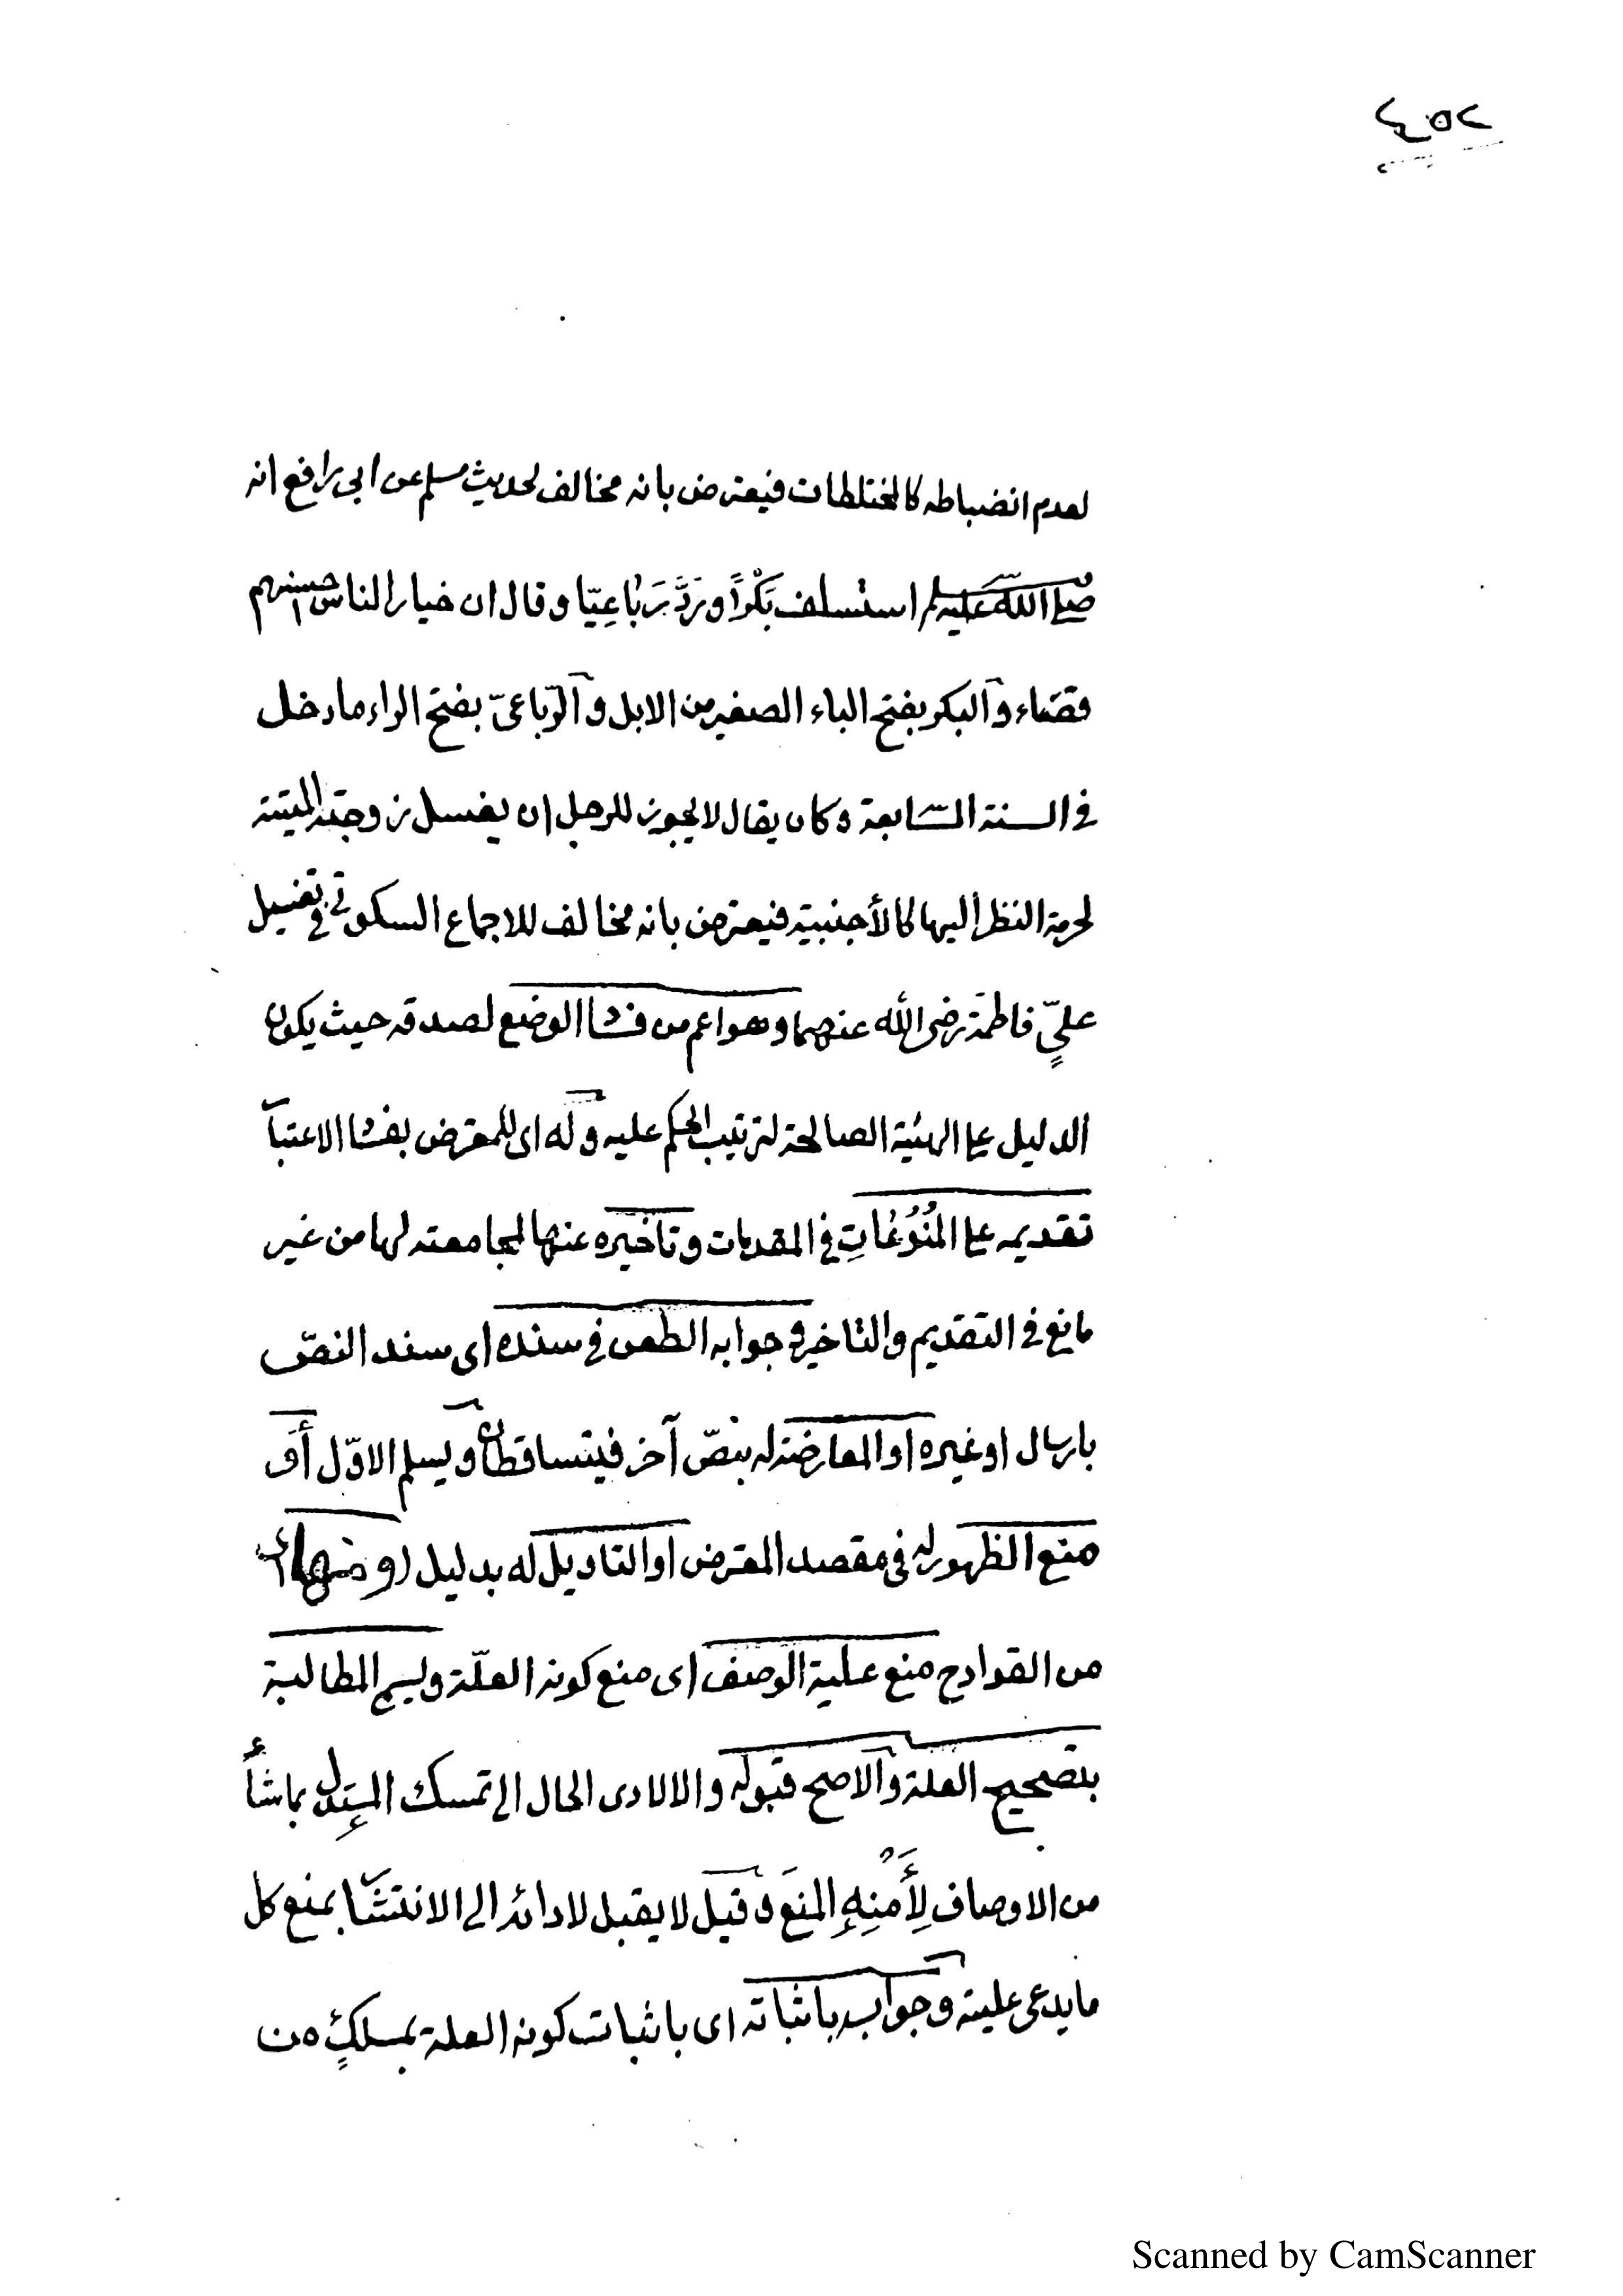 ٢٥٤
لعدم انضباطه كالمختلطات فيعترض بانه مخالف لحديث مسلم عن ابى رافع انه
صلى الله عليه وسلم استسلف بَكْرًا وردَّ رَبَاعِيّا وقال ان خيار الناس احسنهم
قضاء والبكر بفتح الباء الصغير من الابل والرّباعىّ بفتح الراء ما دخل
فى السنة السّابعة وكان يقال لا يجوز للرجل ان يغسل زوجته الميتة
لحرمة النظر اليها كالأجنبية فيعترض بانه مخالف للاجماع السكوتى فى تغسيل
علىٍّ فاطمة رضى الله عنهما وهو اعم من فسا الوضع لصدقه حيث يكون
الدليل على الهيئة الصالحة لترتيب الحكم عليه وله اى للمعترض بفسا الاعتبا
تقديمه على المُنُوعَاتِ فى المقدمات وتاخيره عنها لمجامعته لها من غير
مانع فى التقديم والتاخير وجوابه الطعن فى سنده اى سند النصّ
بارسال او غيره او المعارضة له بنصّ آخر فيتساقطان ويسلم الاوّل أو
منع الظهور له فى مقصد المعترض او التاويل له بدليل (ومنها) اى
من القوادح منع علية الوصف اى منع كونه العلّة ويسمى المطالبة
بتصحيح العلة والاصح قبوله والا لادى الحال الى تمسك المستدل بما شأ
من الاوصاف لِأَمْنِهِ المنعَ وقيل لا يقبل لادائه الى الانتشا بمنع كل
ما يدعى علية وجوابه باثباته اى باثبات كونه العلة بمسلكٍ من
Scanned by CamScanner